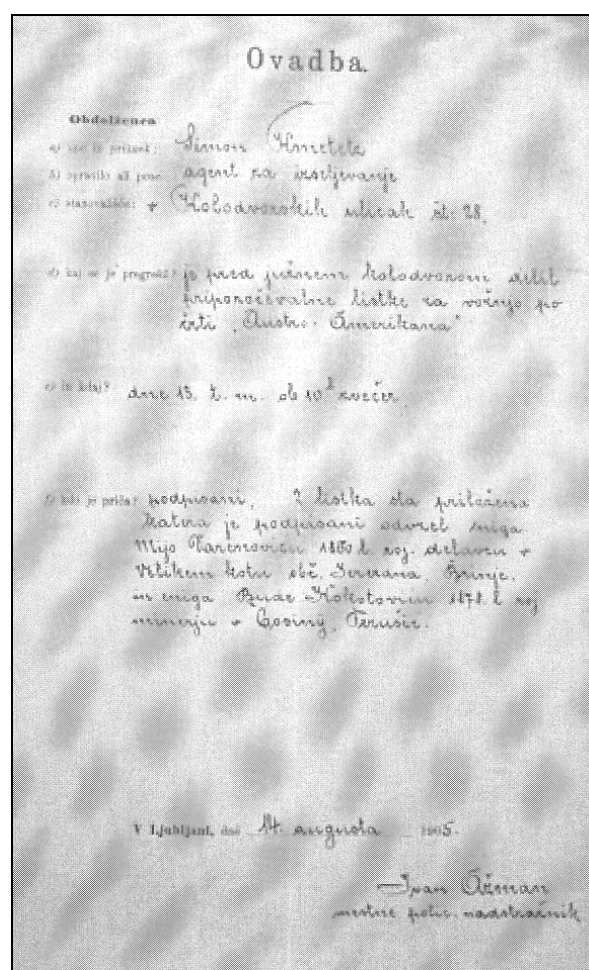 Ovadba.
Obdolženca
a) ime in priimek: Simon Kmetetz
b) opravilo ali posel agent za izseljevanje
c) stanovališče: v Kolodvorskih ulicah št. 28.
d) kaj se je pregrešil? je pred južnem kolodvorom delil
priporočevalne listke za vožnjo po
črti „Austro-Amerikana"
e) in kdaj? dne 13. t. m. ob 10h zvečer
f) kdo je priča? podpisani, 2 listka sta priložena
katera je podpisani odvzel enega
Mijo 1860 l. roj. delavcu v
Velikem kotu obč. Brinje.
in enega Bude 1878 l roj
v
V Ljubljani, dne 14. augusta 1905.
Ivan Ažman
mestne polic. nadstražnik